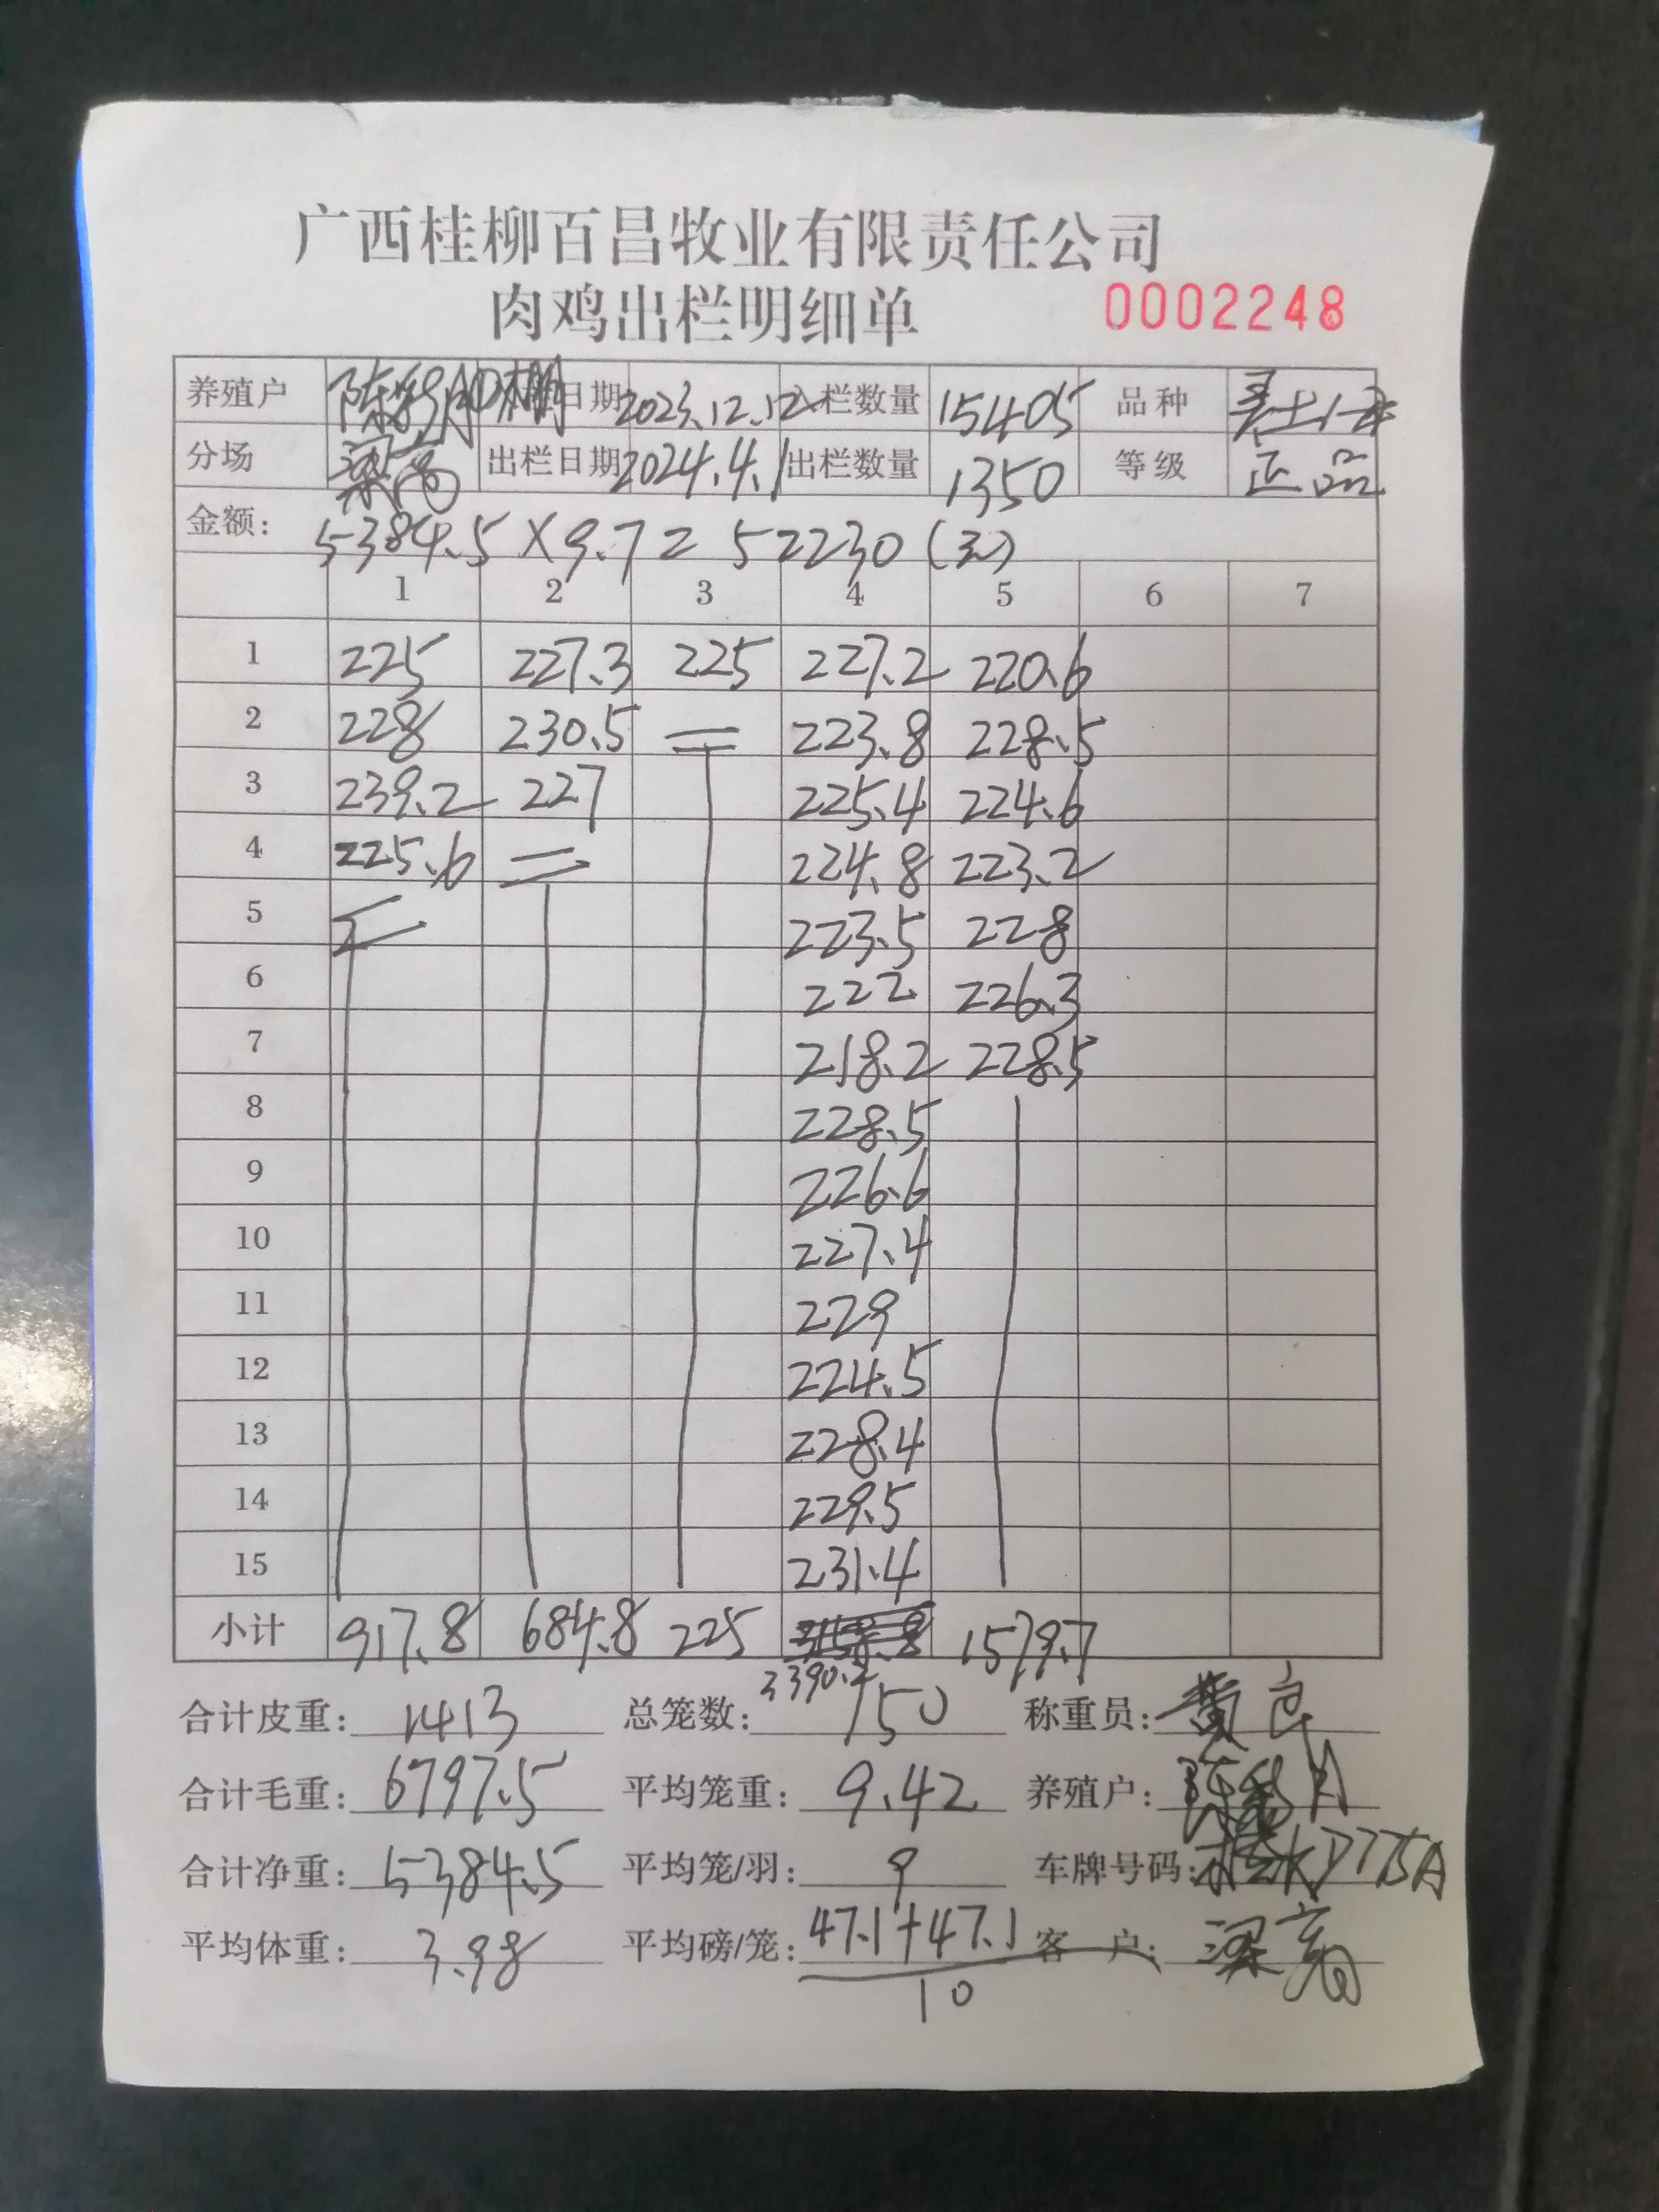 广西桂柳百昌牧业有限责任公司
肉鸡出栏明细单 0002248
养殖户 日期 2023.12.12 入栏数量 15405 品种
分场 梁高 出栏日期 2024.4.1 出栏数量 1350 等级 正品
金额: 5384.5×9.7=52230(元)
1 2 3 4 5 6 7
1 225 227.3 225 227.2 220.6
2 228 230.5 = 223.8 228.5
3 239.2 227 225.4 224.6
4 225.6 = 224.8 223.2
5 = 223.5 228
6 222 226.3
7 218.2 228.5
8 228.5
9 226.6
10 227.4
11 229
12 224.5
13 228.4
14 229.5
15 231.4
小计 917.8 684.8 225 3390.2 1579.7
合计皮重: 1413 总笼数: 150 称重员: 黄
合计毛重: 6797.5 平均笼重: 9.42 养殖户:
合计净重: 5384.5 平均笼/羽: 9 车牌号码:
平均体重: 3.98 平均磅/笼: 47.1+47.1 客户: 梁高
10